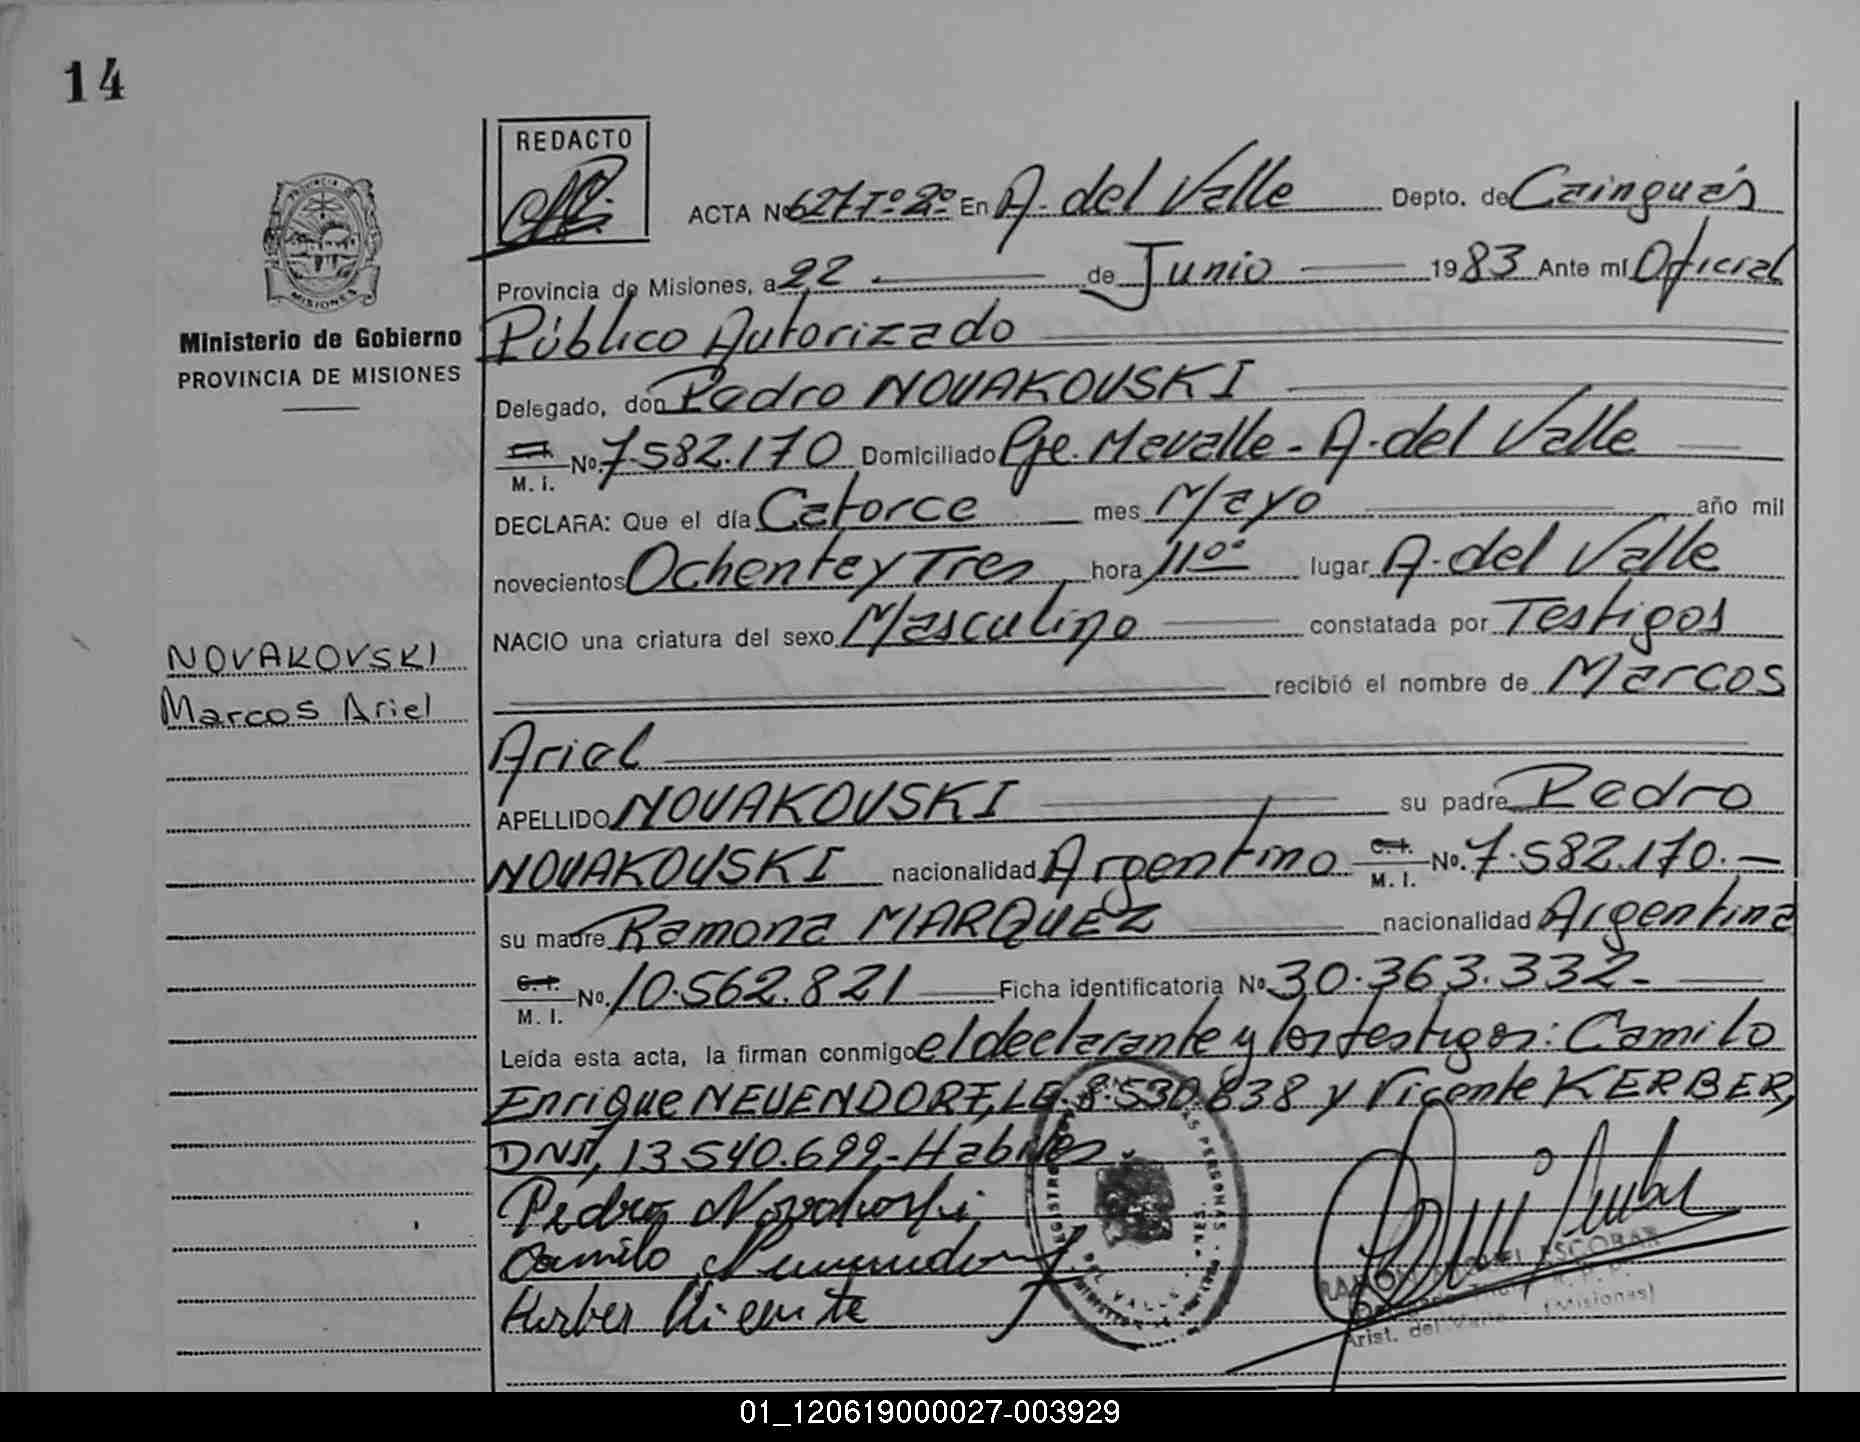 14
REDACTO
ACTA Nº 627 Tº 2º En A. del Valle Depto. de Cainguás
Provincia de Misiones, a 22 de Junio 1983 Ante mí Oficial
Público Autorizado
Delegado, don Pedro NOVAKOVSKI
C.I. M. I. Nº 7.582.170 Domiciliado Pje. Mevalle - A. del Valle
DECLARA: Que el día Catorce mes Mayo año mil
novecientos Ochenta y Tres hora 11ºº lugar A. del Valle
NACIO una criatura del sexo Masculino constatada por Testigos
recibió el nombre de Marcos
Ariel
APELLIDO NOVAKOVSKI su padre Pedro
NOVAKOVSKI nacionalidad Argentino C.I. M. I. Nº. 7.582.170.-
su madre Ramona MARQUEZ nacionalidad Argentina
C.I. M. I. Nº. 10.562.821 Ficha identificatoria Nº 30.363.332-
Leída esta acta, la firman conmigo el declarante y los testigos: Camilo
Enrique NEUENDORF, LE. 8.530.838 y Vicente KERBER,
DNI, 13.540.699,- Habiles
Pedro Novakoski
Camilo Neuendorf
Kerber Vicente
PROVINCIA DE
MISIONES
Ministerio de Gobierno
PROVINCIA DE MISIONES
NOVAKOVSKI
Marcos Ariel
REGISTRO PERSONAS
DEL VALLE
ESCOBAR
Arist. del Valle - (Misiones)
01_120619000027-003929